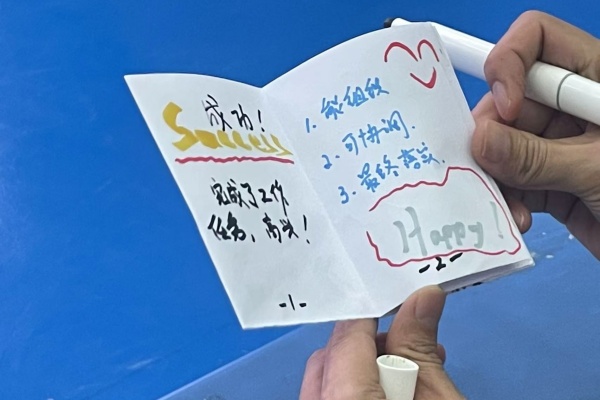 成功!
Success
完成了工作
任务，高兴!
-1-
1. 能组织
2. 可协调.
3. 最终落实.
Happy!
-2-